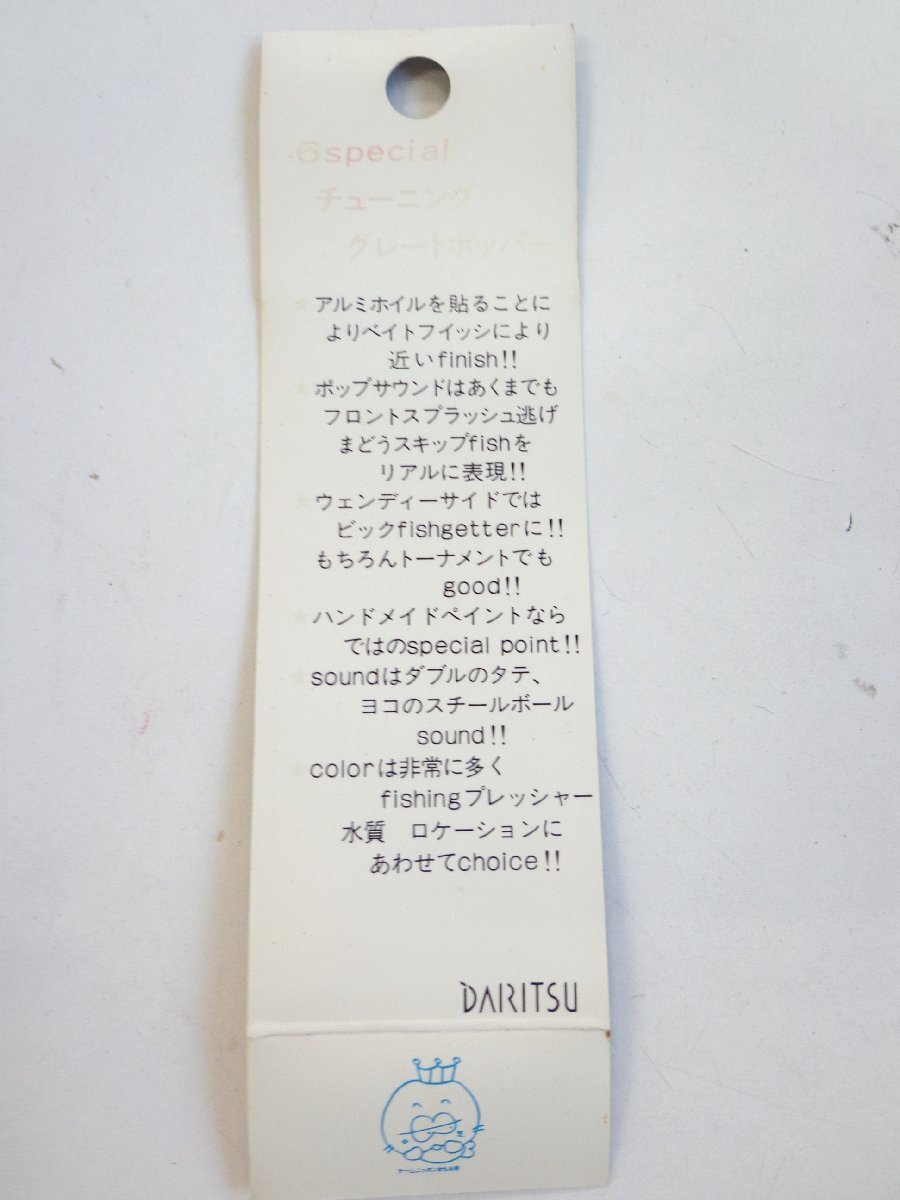 6special
チューニング
グレートポッパー
★アルミホイルを貼ることに
よりベイトフイッシにより
近いfinish!!
★ポップサウンドはあくまでも
フロントスプラッシュ逃げ
まどうスキップfishを
リアルに表現!!
★ウェンディーサイドでは
ビックfishgetterに!!
もちろんトーナメントでも
good!!
★ハンドメイドペイントなら
ではのspecial point!!
★soundはダブルのタテ、
ヨコのスチールボール
sound!!
★colorは非常に多く
fishingプレッシャー
水質　ロケーションに
あわせてchoice!!
DARITSU